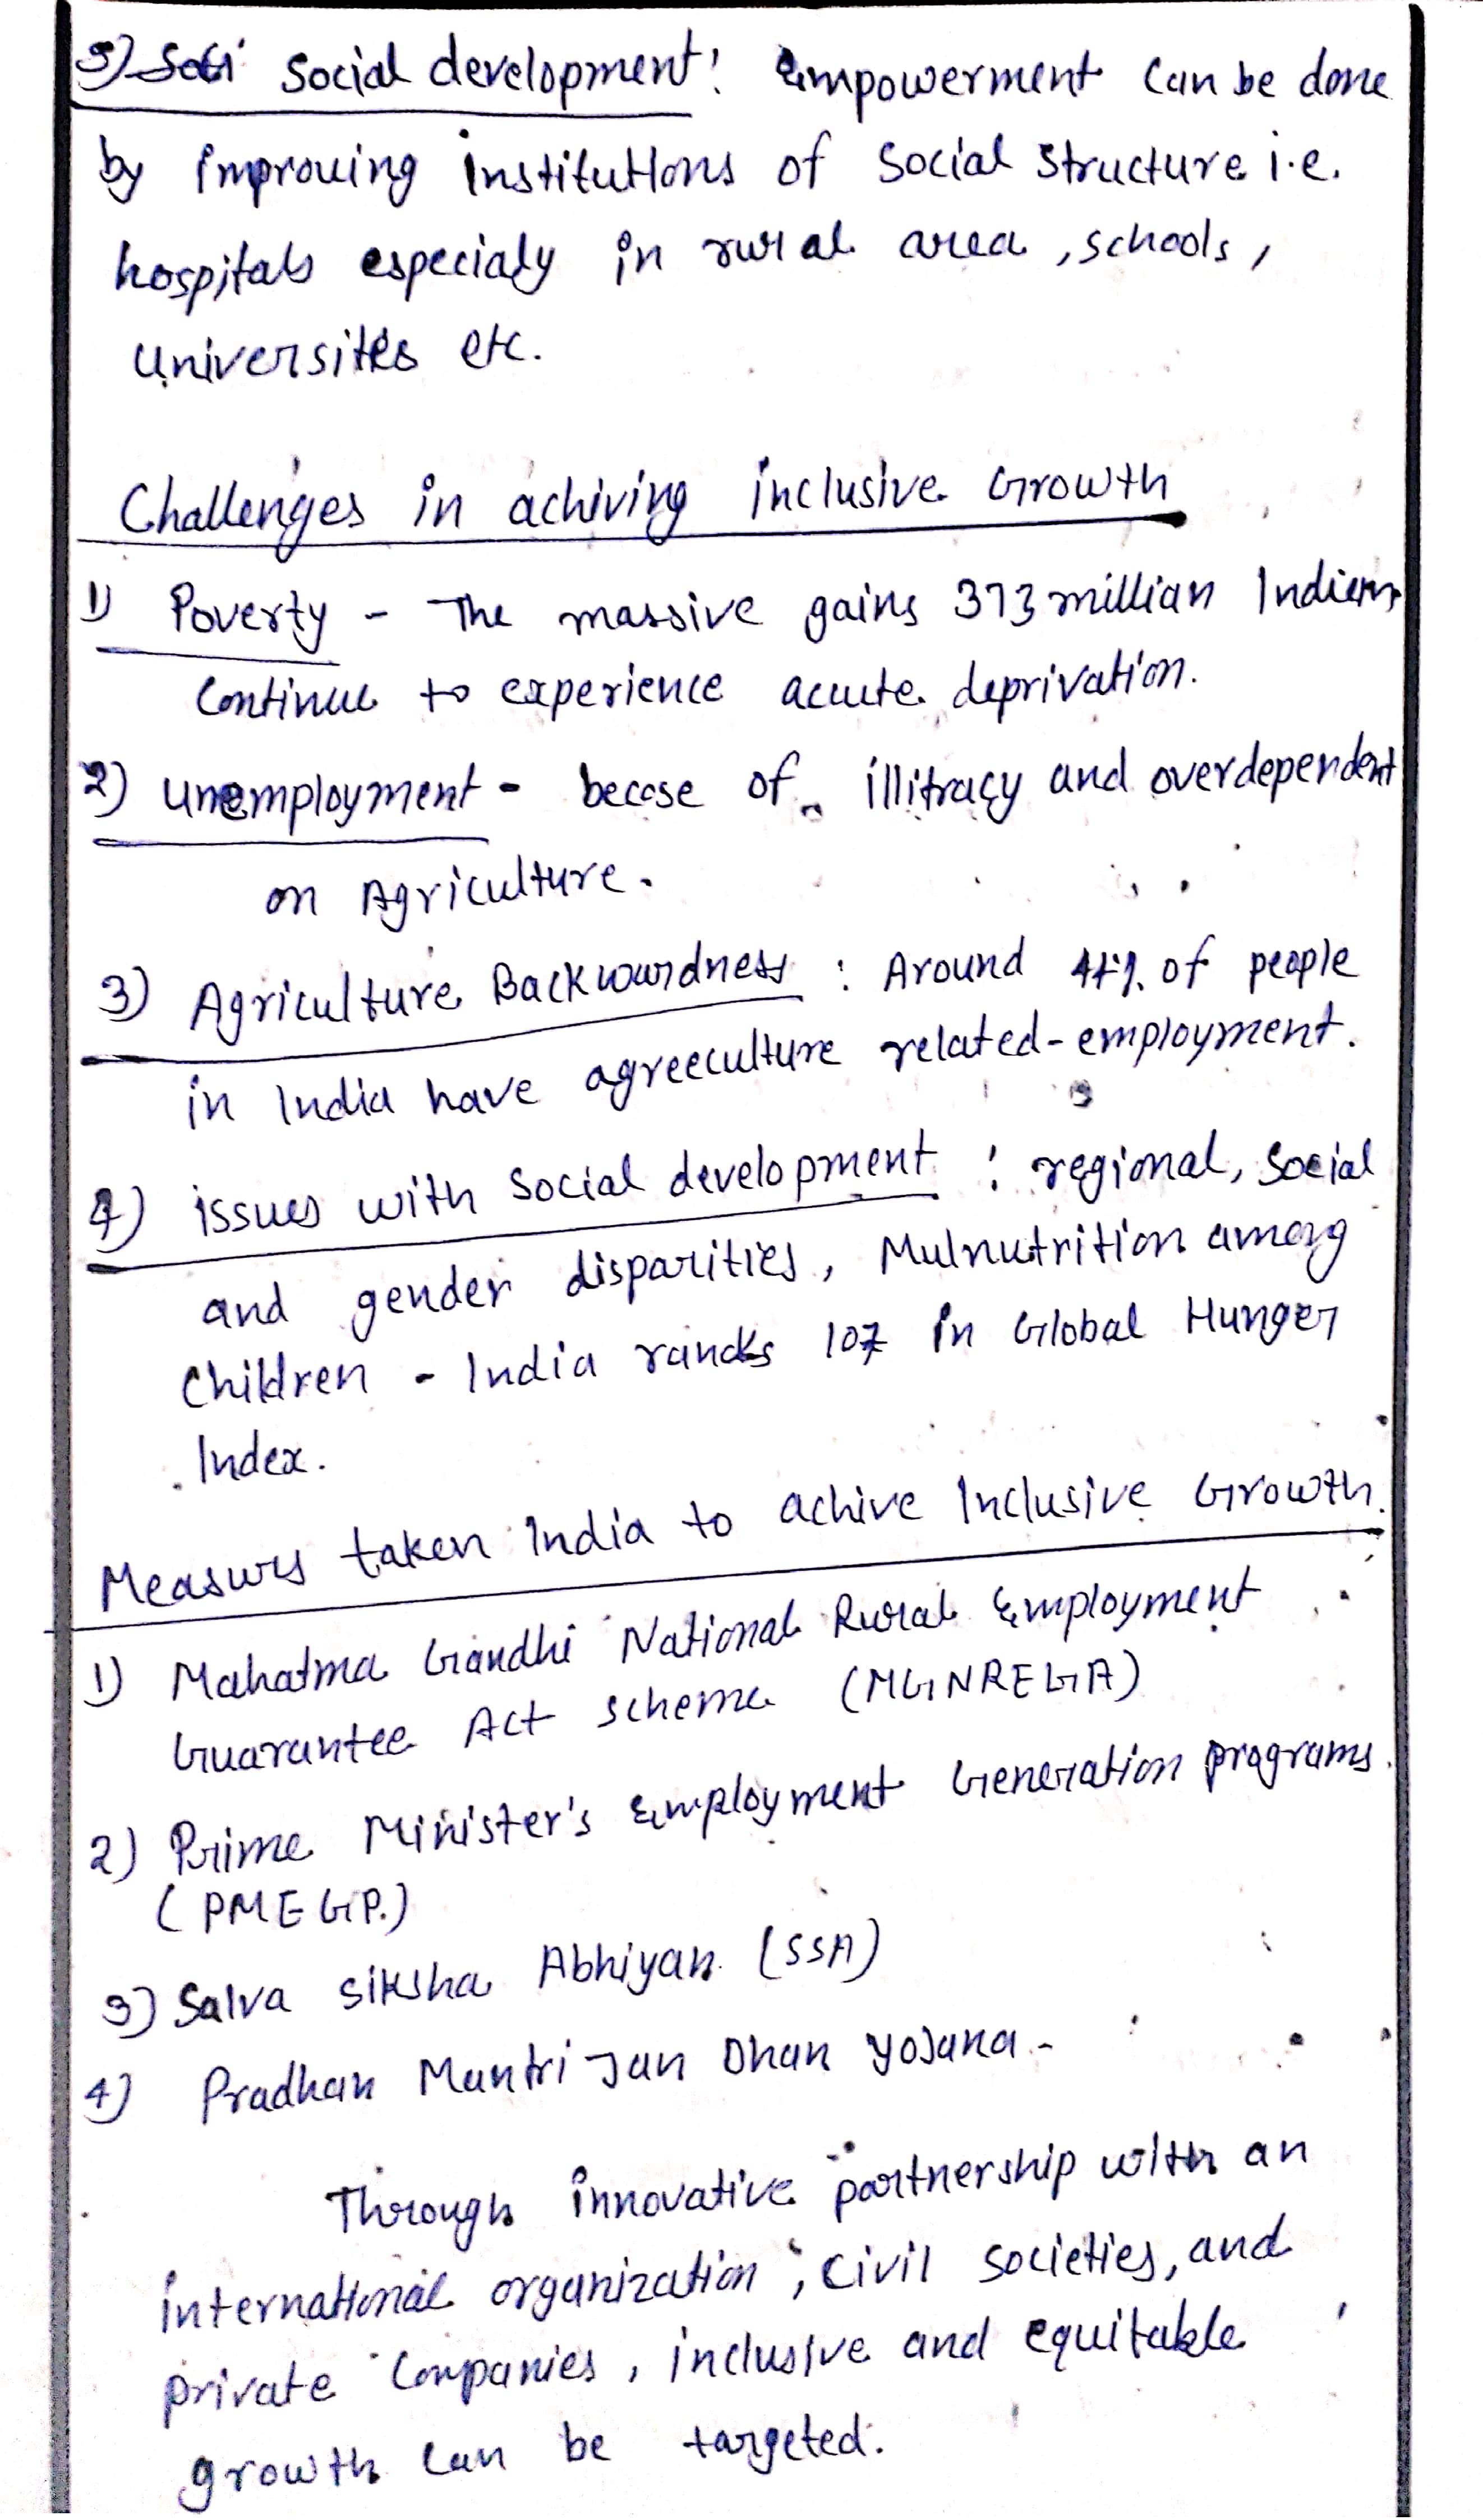 5) Social development: Empowerment can be done
by improving institutions of social structure i.e.
hospitals especialy in rural area, schools,
universites etc.
Challenges in achiving inclusive Growth
1) Poverty - The massive gains 373 millian Indians
continue to experience acute deprivation.
2) unemployment - becose of illitracy and overdependent
on Agriculture.
3) Agriculture Backwardness : Around 44% of people
in India have agreeculture related-employment.
4) issues with social development : regional, social
and gender disparities, Mulnutrition among
children - India rancks 107 in Global Hunger
Index.
Measurs taken India to achive Inclusive Growth.
1) Mahatma Gandhi National Rural Employment
Guarantee Act scheme (MGNREGA)
2) Prime Minister's Employment Generation programs.
(PMEGP.)
3) Salva siksha Abhiyan (SSA)
4) Pradhan Mantri Jan Dhan yojana -
Through innovative partnership with an
international organization, civil societies, and
private companies, inclusive and equitable
growth can be targeted.